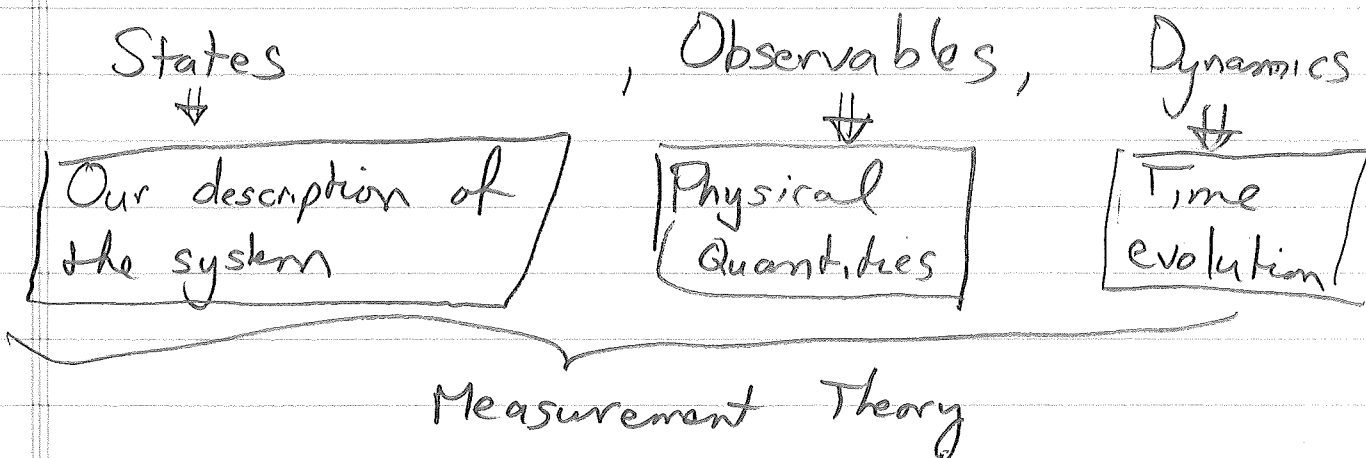 States , Observables, Dynamics
⇓ ⇓ ⇓
Our description of Physical Time
the system Quantities evolution
Measurement Theory